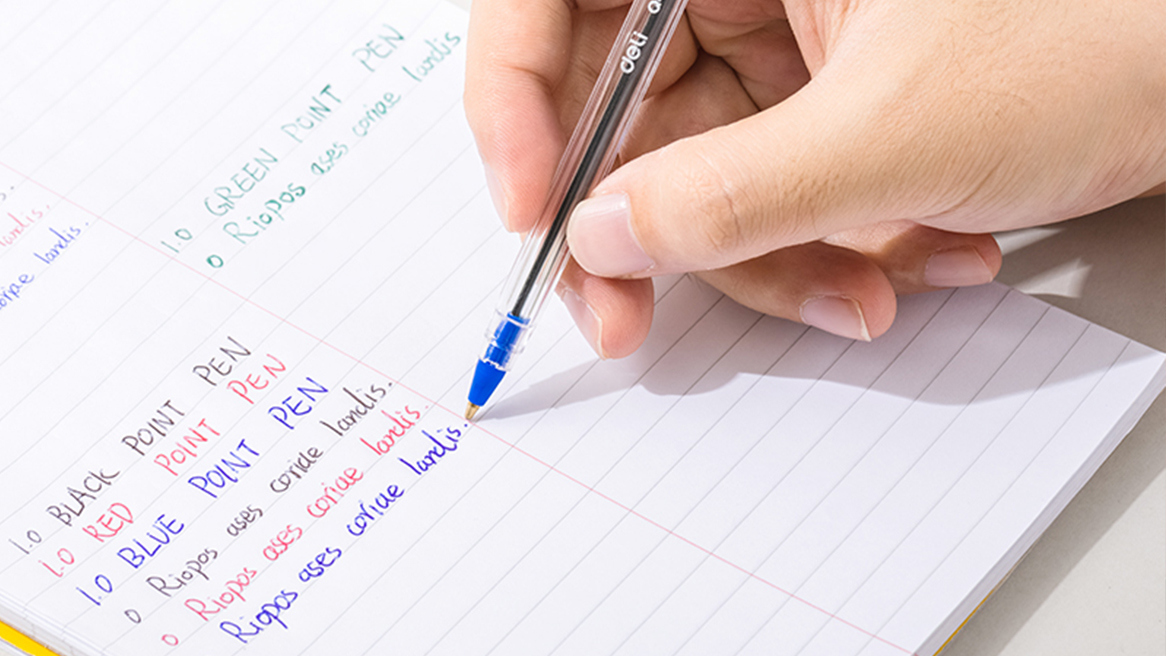 deli
1.0 GREEN POINT PEN
0 Riopos ases coriae landis
landis.
landis.
1.0 BLACK POINT PEN
1.0 RED POINT PEN
1.0 BLUE POINT PEN
0 Riopos ases coriae landis.
0 Riopos ases coriae landis.
Riopos ases coriae landis.